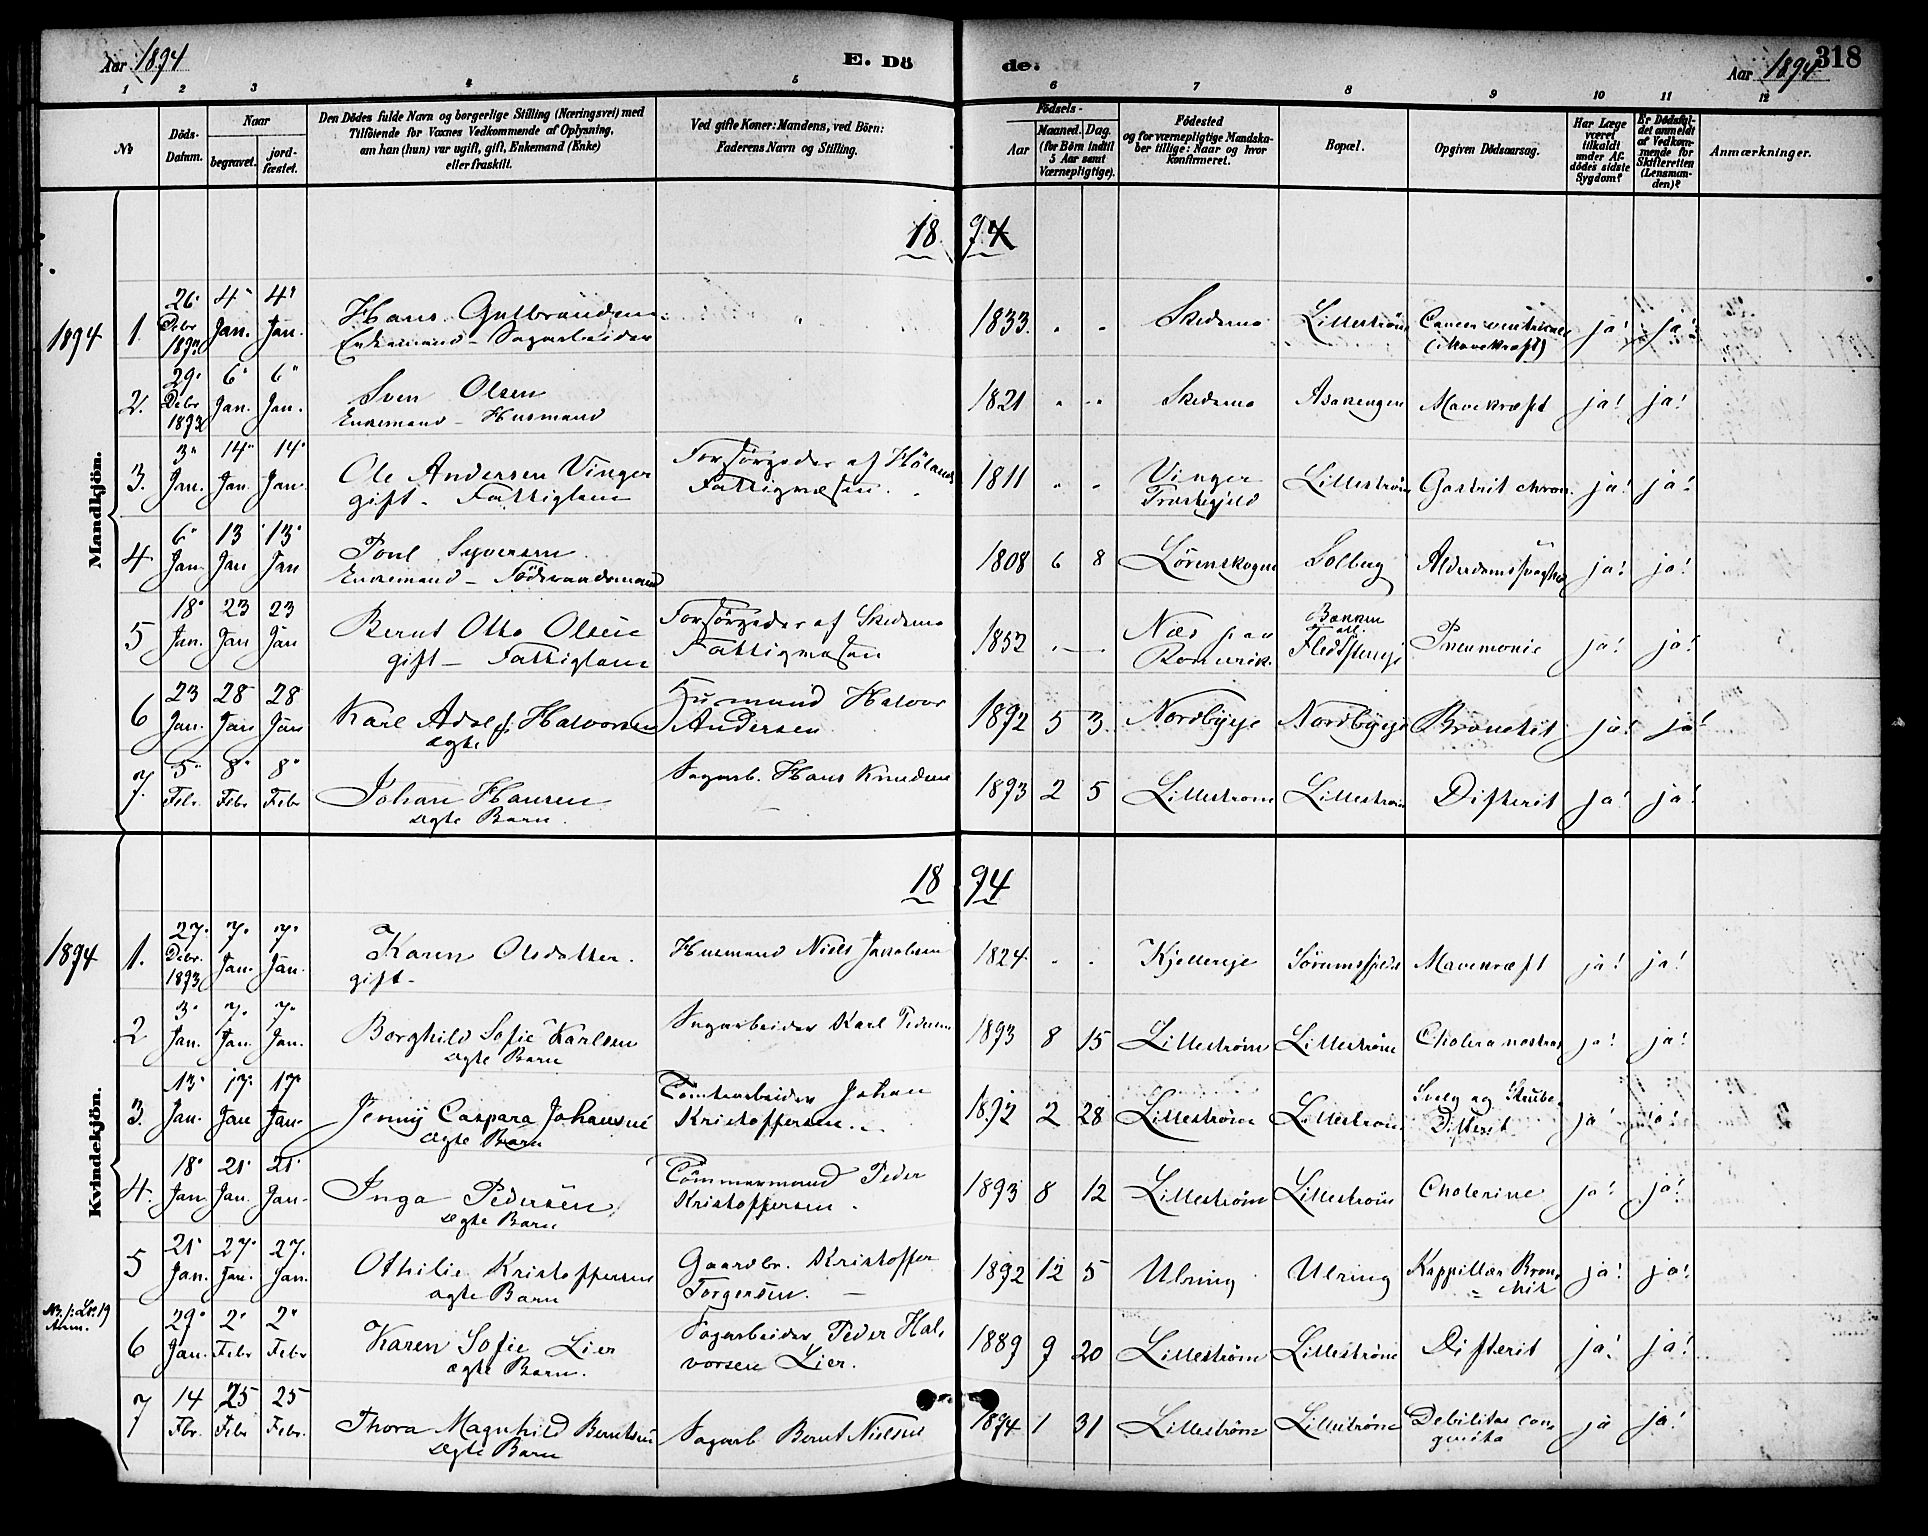 Aar 1894
E. Dö
de.
Aar 1894
318
1 2 3 4 5 6 7 8 9 10 11 12
No
Döds-Datum.
Naar
begravet.
jord-fæstet.
Den Dödes fulde Navn og borgerlige Stilling (Næringsvei) med
Tilföiende for Voxnes Vedkommende af Oplysning,
om han (hun) var ugift, gift, Enkemand (Enke)
eller fraskilt.
Ved gifte Koner: Mandens, ved Börn:
Faderens Navn og Stilling.
Födsels-
Aar
Maaned. Dag.
(for Börn indtil
5 Aar samt
Værnepligtige).
Födested
og for værnepligtige Mandska-
ber tillige: Naar og hvor
Konfirmeret.
Bopæl.
Opgiven Dödsaarsag.
Har Læge
været
tilkaldt
under Af-
dödes sidste
Sygdom?
Er Dödsfal-
det anmeldt
af Vedkom-
mende for
Skifteretten
(Lensman-
den)?
Anmærkninger.
Mandkjön.
18 94
1894 1. 26 Debr 1893 4 Jan. 4 Jan. Hans Gulbrandsen Enkemand - Sagarbeider 1833 Skedsmo Lillestrøm Cancer ventriculi (Mavekræft) ja! ja!
2. 29 Debr 1893 6 Jan. 6 Jan. Sven Olsen Enkemand - Husmand 1821 Skedsmo Asakengen Mavekræft ja! ja!
3. 3 Jan. 14 Jan. 14 Jan. Ole Andersen Vinger gift - Fattiglem Forsørgedes af Hølands Fattigvæsen. 1811 Vinger Præstegjeld Lillestrøm Gastrit chron. ja! ja!
4 6 Jan. 13 Jan 13 Jan Poul Syversen Enkemand - Föderaadsmand 1808 6 8 Lørenskogen Solberg Alderdomssvaghed ja! ja!
5 18 Jan. 23 Jan 23 Jan Bernt Otto Olsen gift - Fattiglem Forsørgedes af Skedsmo Fattigvæsen 1852 Næs paa Romerik. Bakken Pneumonie ja! ja!
6 23 Jan. 28 Jan 28 Jan Karl Adolf Halvorsen ægte Husmand Halvor Andersen 1892 5 3. Nordbyeje Nordbyeje Bronchit ja! ja!
7. 5 Febr. 8 Febr 8 Febr Johan Hansen ægte Barn. Sagarb. Hans Knudsen 1893 2 5 Lillestrøm Lillestrøm Difterit ja! ja!
Kvindekjön.
18 94
1894 1. 27. Debr. 1893 7. Jan. 7 Jan. Karen Olsdatter. gift - Husmand Niels Jacobsen 1824 Kjellereje Sørumsfjeld Mavekræft ja! ja!
2 3 Jan. 7. Jan. 7 Jan. Borghild Sofie Karlsen ægte Barn Sagarbeider Karl Pedersen 1893 8 15 Lillestrøm Lillestrøm Cholera nostras ja! ja!
3. 13 Jan. 17. Jan 17 Jan. Jenny Caspara Johansen ægte Barn Tomtearbeider Johan Kristoffersen. 1892 2 28 Lillestrøm Lillestrøm Svelg og Strube Difterit ja! ja!
4. 18 Jan 21 Jan. 21 Jan. Inga Pedersen ægte Barn Tömmermand Peder Kristoffersen. 1893 8 12 Lillestrøm Lillestrøm Cholerine ja! ja!
5 21 Jan. 27 Jan. 27. Jan. Othilie Kristoffersen ægte Barn Gaardbr. Kristoffer Torgersen. 1892 12 5 Ulring Ulring Kappillær Bronchit ja! ja!
6 29 Jan. 2 Febr 2 Febr Karen Sofie Lier ægte Barn. Sagarbeider Peder Halvorsen Lier. 1889 9 20 Lillestrøm Lillestrøm Difterit ja! ja!
7 14 Fbr. 25 Febr 25 Febr. Thora Magnhild Berntsen ægte Barn Sagarb Bernt Nielsen 1894 1 31 Lillestrøm Lillestrøm Debilitas congenita ja ja!